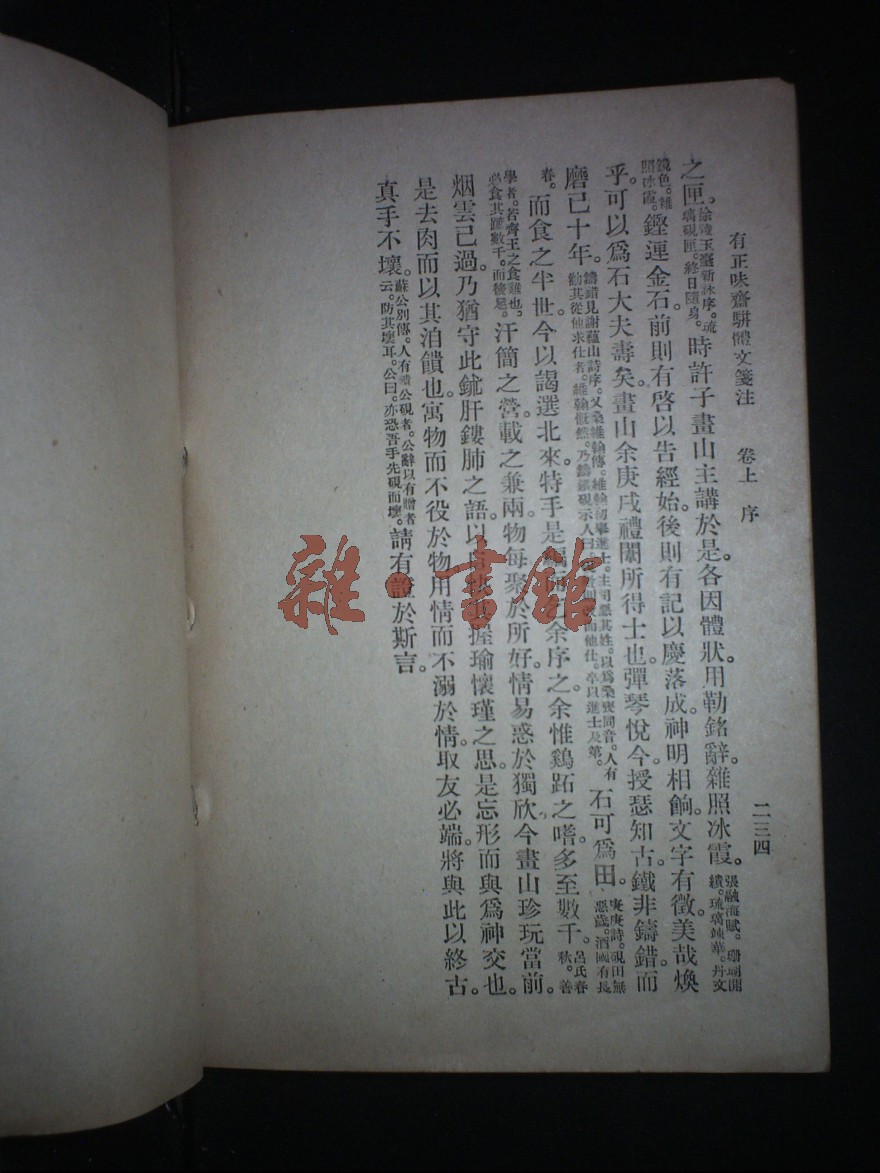 有正味齋駢體文箋注　卷上　序　二三四
之匣。徐陵玉臺新詠序。琉璃硯匣。終日隨身。時許子畫山主講於是。各因體狀。用勒銘辭。雜照冰霞。張融海賦。珊瑚開績。琉璃竦華。丹文
鏡色。雜照冰霞。鏗連金石。前則有啓以告經始。後則有記以慶落成。神明相餉。文字有徵。美哉煥
乎。可以爲石大夫壽矣。畫山余庚戌禮闈所得士也。彈琴悅今。授瑟知古。鐵非鑄錯。而
磨已十年。鑄錯見謝蘊山詩序。又桑維翰傳。維翰初舉進士。主司惡其姓。以爲桑喪同音。人有勸其從他求仕者。維翰慨然。乃鑄鐵硯示人曰。而他仕。卒以進士及第。石可爲田。唐庚詩。硯田無惡歲。酒國有長
春。而食之半世。今以謁選北來。特手是余序之。余惟鷄跖之嗜。多至數千。呂氏春秋。善
學者。若齊王之食雞也。必食其跖數千。而後足。汗簡之營。載之兼兩。物每聚於所好。情易惑於獨欣。今畫山珍玩當前。
烟雲已過。乃猶守此鉥肝鏤肺之語。以握瑜懷瑾之思。是忘形而與爲神交也。
是去肉而以其泊饋也。寓物而不役於物。用情而不溺於情。取友必端。將與此以終古。
真手不壞。蘇公別傳。人有饋公硯者。公辭以有贈者云。防其壞耳。公曰。亦恐吾手先硯而壞。請有證於斯言。
雜·書館